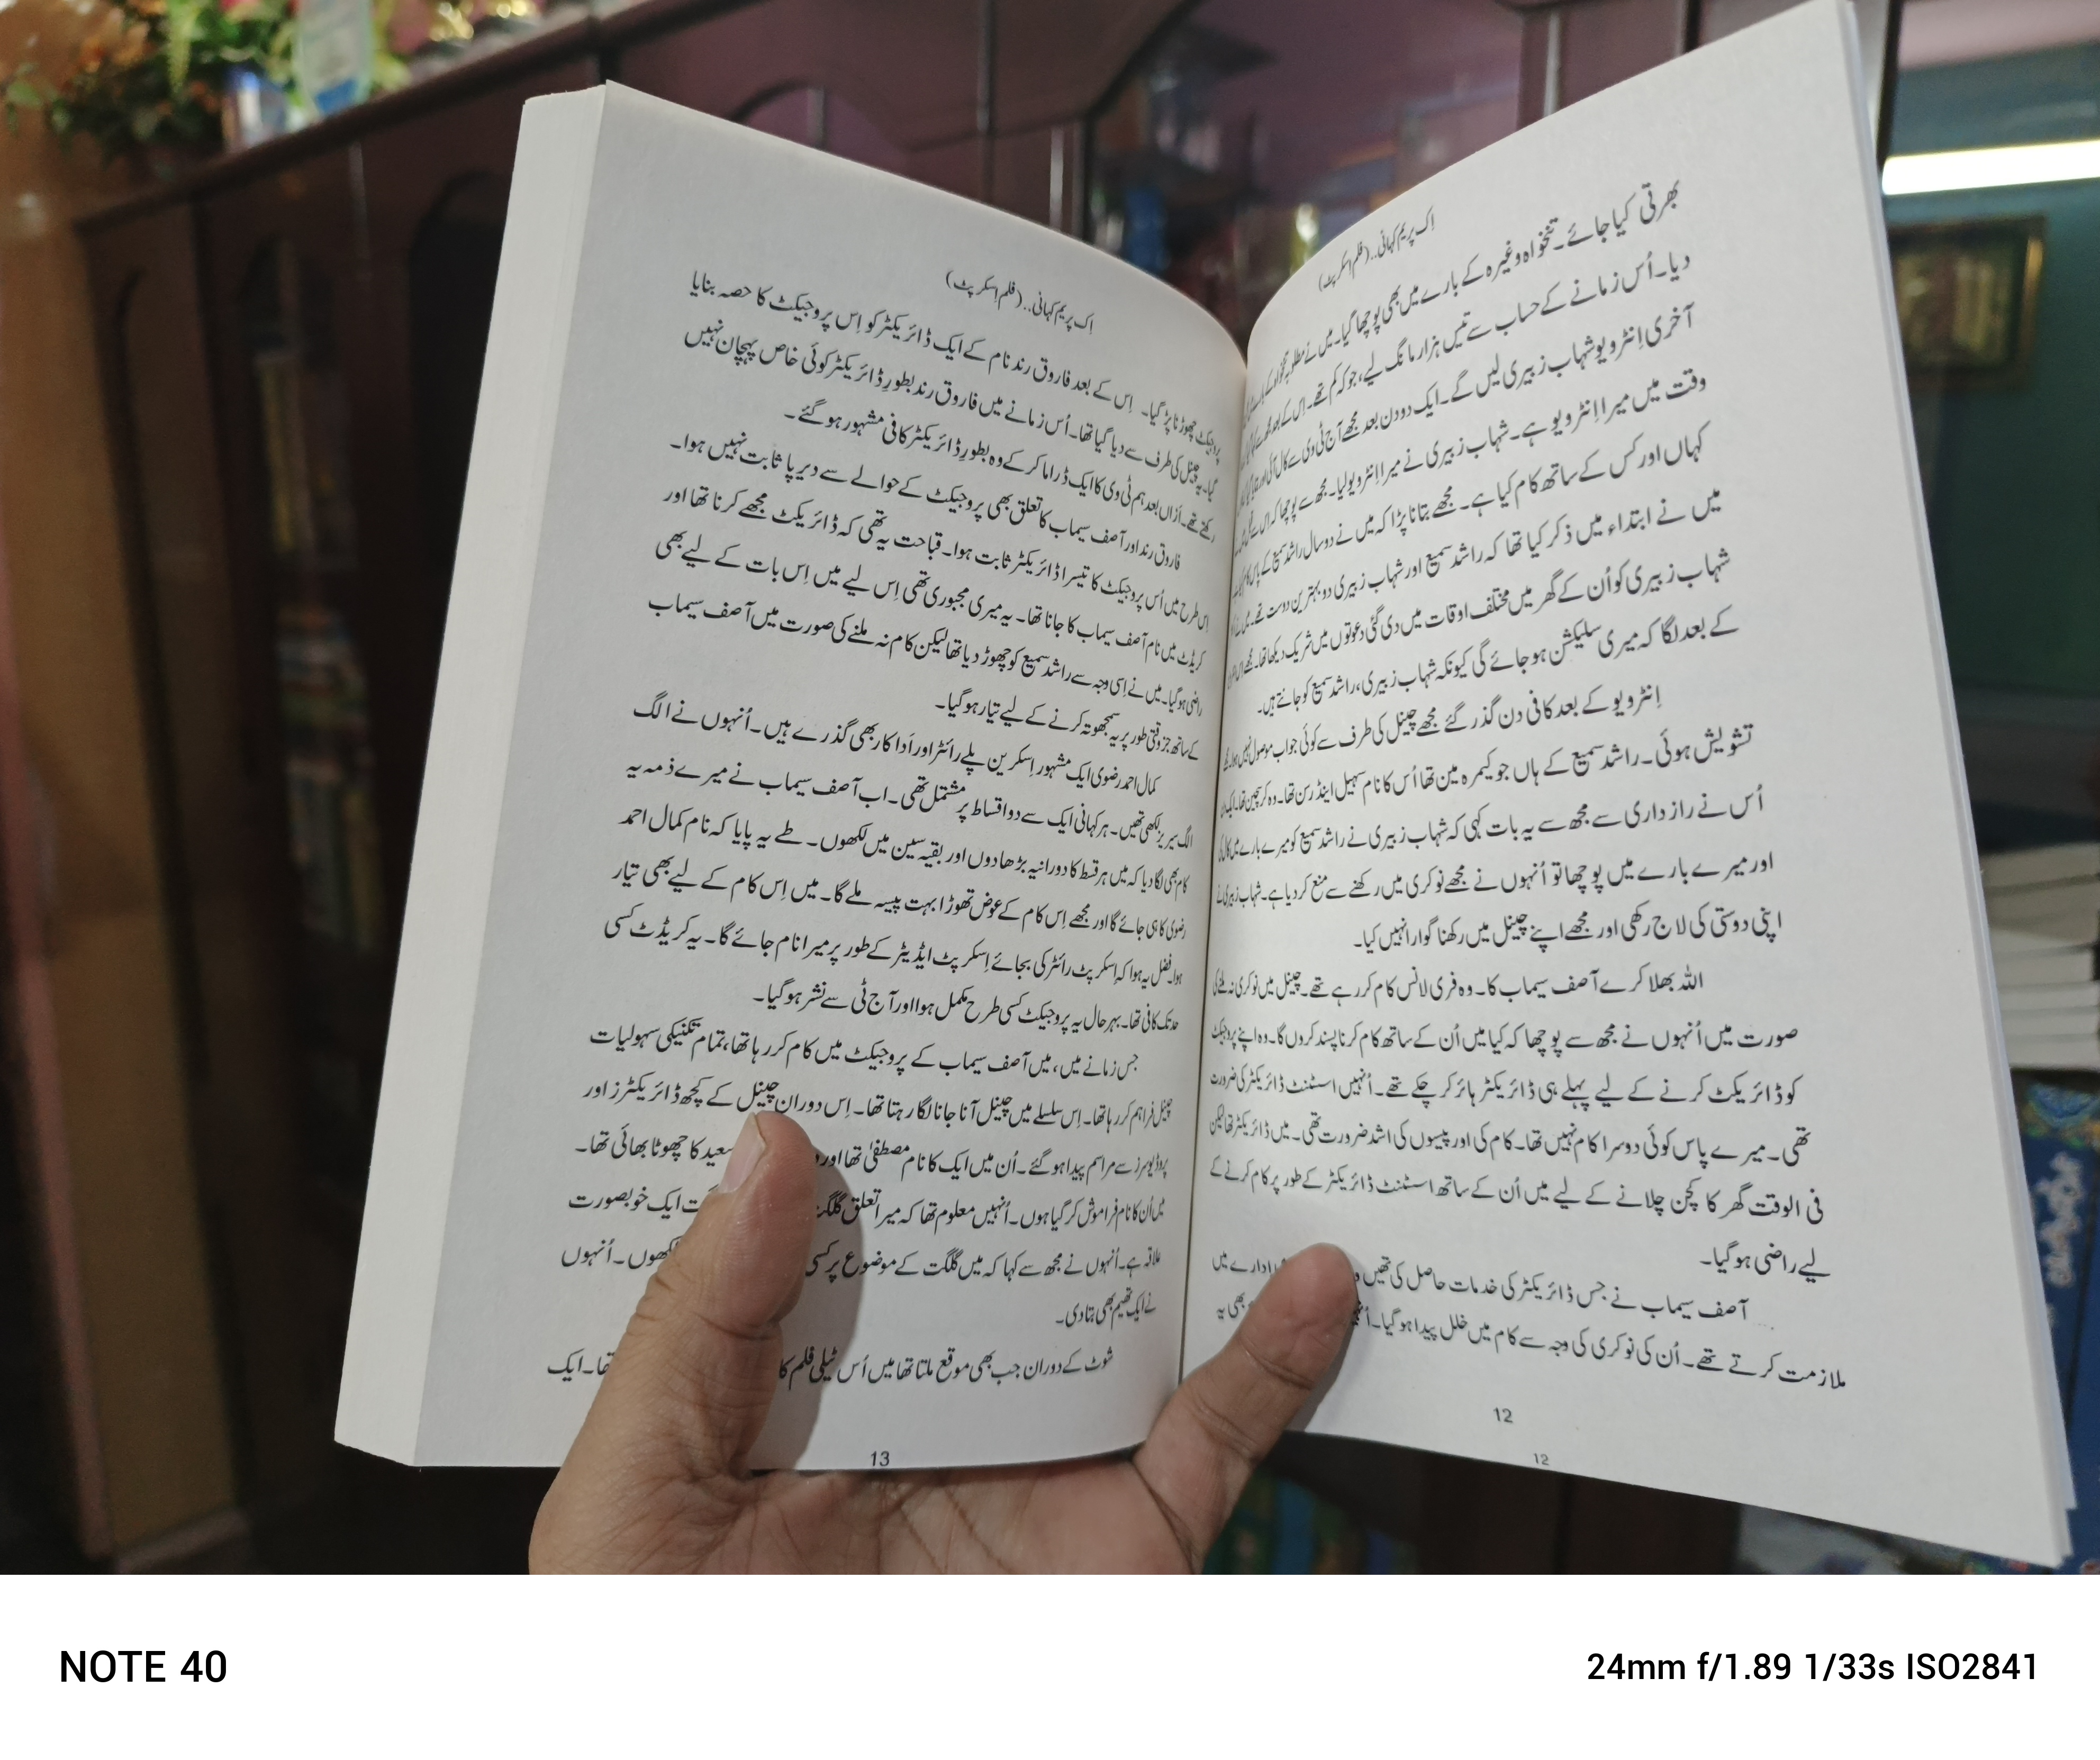 اِک پریم کہانی..(فلم اِسکرپٹ)
بھرتی کیا جائے۔تنخواہ وغیرہ کے بارے میں بھی پوچھا گیا۔میں نے مطلوبہ
دیا۔اُس زمانے کے حساب سے تیس ہزار مانگ لیے،جو کہ کم تھے۔اس کے بعد
آخری اِنٹرویو شہاب زبیری لیں گے۔ایک دو دن بعد مجھے آج ٹی وی سے کال آئی
وقت میں میرا اِنٹرویو ہے۔شہاب زبیری نے میرا اِنٹرویو لیا۔مجھ سے پوچھا کہ
کہاں اور کس کے ساتھ کام کیا ہے۔مجھے بتانا پڑا کہ میں نے دو سال راشد سمیع کے
میں نے ابتداء میں ذکر کیا تھا کہ راشد سمیع اور شہاب زبیری دو بہترین دوست تھے۔
شہاب زبیری کو اُن کے گھر میں مختلف اوقات میں دی گئی دعوتوں میں شریک دیکھا تھا۔
کے بعد لگا کہ میری سلیکشن ہوجائے گی کیونکہ شہاب زبیری،راشد سمیع کو جانتے ہیں۔
اِنٹرویو کے بعد کافی دن گذر گئے مجھے چینل کی طرف سے کوئی جواب موصول نہیں ہوا۔
تشویش ہوئی۔راشد سمیع کے ہاں جو کیمرہ مین تھا اُس کا نام سہیل اینڈرسن تھا۔وہ کرسچین تھا۔
اُس نے رازداری سے مجھ سے یہ بات کہی کہ شہاب زبیری نے راشد سمیع کو میرے بارے میں کال کی
اور میرے بارے میں پوچھا تو اُنہوں نے مجھے نوکری میں رکھنے سے منع کر دیا ہے۔شہاب زبیری نے
اپنی دوستی کی لاج رکھی اور مجھے اپنے چینل میں رکھنا گوارا نہیں کیا۔
اللہ بھلا کرے آصف سیماب کا۔وہ فری لانس کام کررہے تھے۔چینل میں نوکری نہ ملنے کی
صورت میں اُنہوں نے مجھ سے پوچھا کہ کیا میں اُن کے ساتھ کام کرنا پسند کروں گا۔وہ اپنے پروجیکٹ
کو ڈائریکٹ کرنے کے لیے پہلے ہی ڈائریکٹر ہائر کر چکے تھے۔اُنہیں اسسٹنٹ ڈائریکٹر کی ضرورت
تھی۔میرے پاس کوئی دوسرا کام نہیں تھا۔کام کی اور پیسوں کی اشد ضرورت تھی۔میں ڈائریکٹر تھا لیکن
فی الوقت گھر کا کچن چلانے کے لیے میں اُن کے ساتھ اسسٹنٹ ڈائریکٹر کے طور پر کام کرنے کے
لیے راضی ہوگیا۔
آصف سیماب نے جس ڈائریکٹر کی خدمات حاصل کی تھیں ادارے میں
ملازمت کرتے تھے۔اُن کی نوکری کی وجہ سے کام میں خلل پیدا ہوگیا۔ بھی یہ
12
12
اِک پریم کہانی..(فلم اِسکرپٹ)
پروجیکٹ چھوڑنا پڑ گیا۔ اِس کے بعد فاروق رند نام کے ایک ڈائریکٹر کو اِس پروجیکٹ کا حصہ بنایا
گیا۔یہ چینل کی طرف سے دیا گیا تھا۔اُس زمانے میں فاروق رند بطورِ ڈائریکٹر کوئی خاص پہچان نہیں
رکھتے تھے۔ازاں بعد ہم ٹی وی کا ایک ڈراما کر کے وہ بطورِ ڈائریکٹر کافی مشہور ہوگئے۔
فاروق رند اور آصف سیماب کا تعلق بھی پروجیکٹ کے حوالے سے دیرپا ثابت نہیں ہوا۔
اِس طرح میں اُس پروجیکٹ کا تیسرا ڈائریکٹر ثابت ہوا۔قباحت یہ تھی کہ ڈائریکٹ مجھے کرنا تھا اور
کریڈٹ میں نام آصف سیماب کا جانا تھا۔یہ میری مجبوری تھی اِس لیے میں اِس بات کے لیے بھی
راضی ہوگیا۔میں نے اِسی وجہ سے راشد سمیع کو چھوڑ دیا تھا لیکن کام نہ ملنے کی صورت میں آصف سیماب
کے ساتھ جزوقتی طور پر یہ سمجھوتہ کرنے کے لیے تیار ہوگیا۔
کمال احمد رضوی ایک مشہور اِسکرین پلے رائٹر اور اَداکار بھی گذرے ہیں۔اُنہوں نے الگ
الگ سیریز لکھی تھیں۔ہر کہانی ایک سے دو اقساط پر مشتمل تھی۔اب آصف سیماب نے میرے ذمہ یہ
کام بھی لگا دیا کہ میں ہر قسط کا دورانیہ بڑھا دوں اور بقیہ سین میں لکھوں۔طے یہ پایا کہ نام کمال احمد
رضوی کا ہی جائے گا اور مجھے اِس کام کے عوض تھوڑا بہت پیسہ ملے گا۔میں اِس کام کے لیے بھی تیار
ہوا۔فضل یہ ہوا کہ اِسکرپٹ رائٹر کی بجائے اِسکرپٹ ایڈیٹر کے طور پر میرا نام جائے گا۔یہ کریڈٹ کسی
حد تک کافی تھا۔بہرحال یہ پروجیکٹ کسی طرح مکمل ہوا اور آج ٹی سے نشر ہوگیا۔
جس زمانے میں،میں آصف سیماب کے پروجیکٹ میں کام کررہا تھا،تمام تکنیکی سہولیات
چینل فراہم کررہا تھا۔اِس سلسلے میں چینل آنا جانا لگا رہتا تھا۔اِس دوران چینل کے کچھ ڈائریکٹرز اور
پروڈیوسرز سے مراسم پیدا ہوگئے۔اُن میں ایک کا نام مصطفیٰ تھا اور سعید کا چھوٹا بھائی تھا۔
میں اُن کا نام فراموش کر گیا ہوں۔اُنہیں معلوم تھا کہ میرا تعلق گلگت ایک خوبصورت
علاقہ ہے۔اُنہوں نے مجھ سے کہا کہ میں گلگت کے موضوع پر کسی لکھوں۔اُنہوں
نے ایک تھیم بھی بتا دی۔
شوٹ کے دوران جب بھی موقع ملتا تھا میں اُس ٹیلی فلم کا تھا۔ایک
13
NOTE 40
24mm f/1.89 1/33s ISO2841